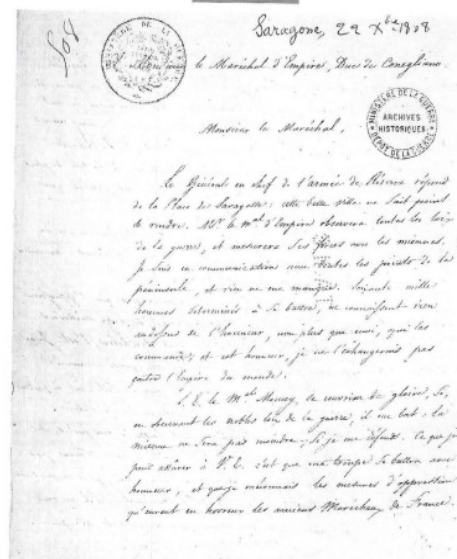 508
Saragosse, 22 Xbre 1808
MINISTÈRE DE LA GUERRE
le Maréchal d'Empire, Duc de Conegliano.
MINISTÈRE DE LA GUERRE
ARCHIVES
HISTORIQUES
DÉPOT DE LA GUERRE
Monsieur le Maréchal,
Le Général en chef de l'armée de Réserve répond
de la Place de Saragosse: cette belle ville ne sait point
se rendre. Mr. le Mal d'Empire observera toutes les loix
de la guerre, et mesurera ses forces avec les miennes.
Je suis en communication avec toutes les points de la
péninsule, et rien ne me manque. Soixante mille
hommes déterminés à se battre, ne connaissent rien
audessus de l'honneur, non plus que moi, qui les
commande; et cet honneur, je ne l'échangerais pas
contre l'Empire du monde.
S. E. le Mal Moncey, se couvrira de gloire, si,
en observant les nobles loix de la guerre, il me bat: la
mienne ne sera pas moindre, si je me défends. Ce que je
puis assurer à V. E. c'est que ma troupe se battra avec
honneur, et que je méconnais les mesures d'oppression
qu'eurent en horreur les anciens Maréchaux de France.